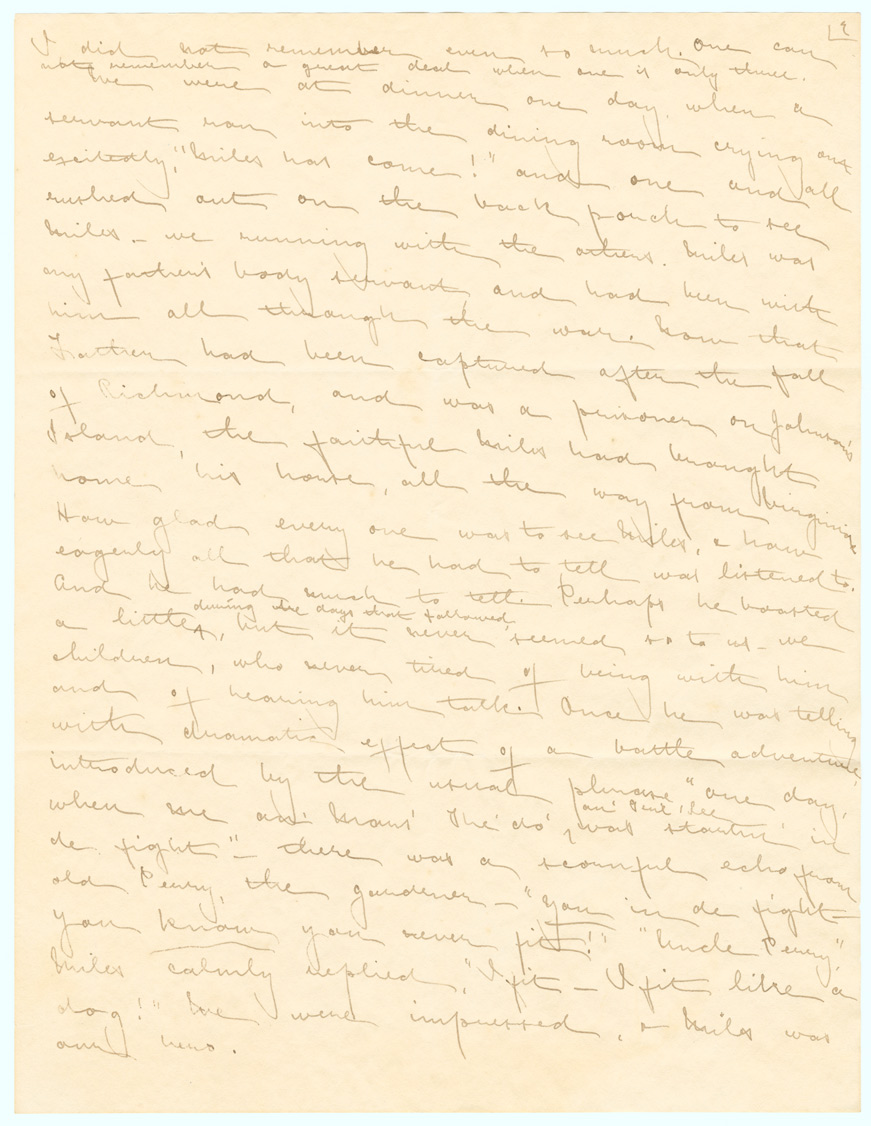 I did not remember even so much. One can
not remember a great deal when one is only three.
We were at dinner one day, when a
servant ran into the dining room crying out
excitedly, "Miles has come!" and one and all
rushed out on the back porch to see
Miles. - we running with the others. Miles was
my father's body servant, and had been with
him all through the war. Now that
Father had been captured after the fall
of Richmond, and was a prisoner on Johnson's
Island, the faithful Miles had brought
home his horse, all the way from Virginia.
How glad every one was to see Miles, & how
eagerly all that he had to tell was listened to.
And he had much to tell. Perhaps he boasted
during the days that followed,
a little, but it never seemed so to us - we
children, who never tired of being with him
and of hearing him talk. Once he was telling
with dramatic effect of a battle adventure,
introduced by the usual phrase "one day,
when me an' Mars' The'do', was startin' in
de fight" - there was a scornful echo from
old Perry, the gardener - "you in de fight -
you know you never fit!" "Uncle Perry",
Miles calmly replied, "I fit - I fit like a
dog!" We were impressed, & Miles was
our hero.